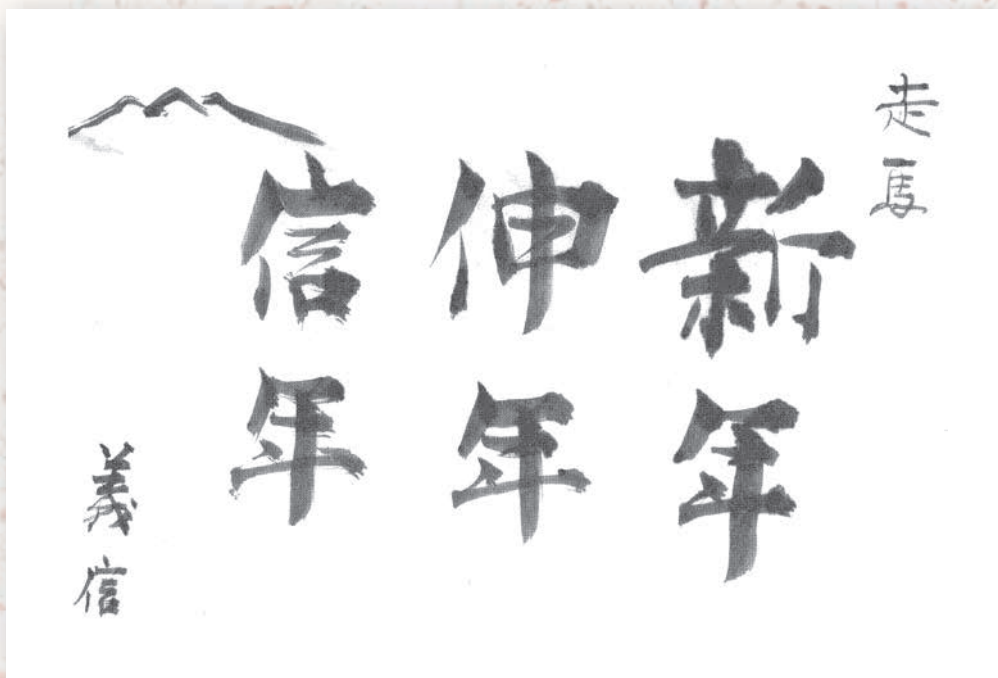 走馬
新年
伸年
信年
義信